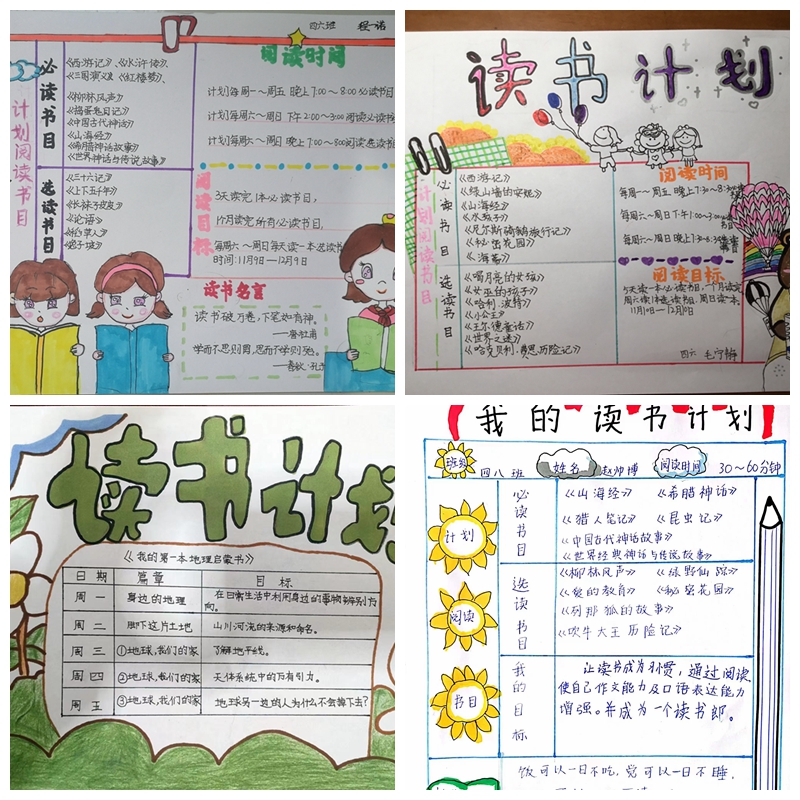 四六班 程一诺
计划阅读书目
必读书目
《西游记》、《水浒传》、
《三国演义》《红楼梦》、
《柳林风声》
《捣蛋鬼日记》
《中国古代神话》
《山海经》
《希腊神话故事》
《世界神话与传说故事》
选读书目
《三十六记》
《上下五千年》
《长袜子皮皮》
《论语》
《稻草人》
《老子故》
阅读时间
计划每周一~周五 晚上7:00~8:00必读书目
计划每周六~周日 下午2:00~3:00阅读必读书
计划每周六~周日 晚上7:00~8:00阅读选读书
阅读目标
3天读完1本必读书目,
1个月读完所有必读书目,
每周六~周日每天读一本选读书
时间:11月9日—12月9日
读书名言
读书破万卷,下笔如有神。
——唐·杜甫
学而不思则罔,思而不学则殆。
——春秋·孔子
读书计划
计划阅读书目
必读书目
《西游记》
《绿山墙的安妮》
《山海经》
《水孩子》
《尼尔斯骑鹅旅行记》
《秘密花园》
《海蒂》
选读书目
《喝月亮的女孩》
《女巫的孩子》
《哈利·波特》
《小公主》
《王尔德童话》
《世界之谜》
《哈克贝利·费恩历险记》
阅读时间
每周一~周五 晚上7:30~8:30
每周六~周日下午1:00~3:00
每周六~周日晚上7:30~8:30
阅读目标
5天读一本必读书目,一个月读完
周六读1本选读书目,周日读一本.
11月10日—12月10日
四六 毛宁静
读书计划
《我的第一本地理启蒙书》
日期 篇章 目标
周一 身边的地理 在日常生活中利用身边的事物辨别方向。
周二 脚下这片土地 山川河流的来源和命名。
周三 ①地球,我们的家 了解地平线。
周四 ②地球,我们的家 天体系统中的万有引力。
周五 ③地球,我们的家 地球另一边的人为什么不会掉下去?
我的读书计划
班级 四八班 姓名 赵帅博 阅读时间 30~60分钟
计划
阅读
书目
必读书目
《山海经》 《希腊神话》
《猎人笔记》 《昆虫记》
《中国古代神话故事》
《世界经典神话与传说故事》
选读书目
《柳林风声》 《绿野仙踪》
《爱的教育》 《秘密花园》
《列那狐的故事》
《吹牛大王历险记》
我的目标
让读书成为习惯,通过阅读
使自己作文能力及口语表达能力
增强。并成为一个读书郎。
饭可以一日不吃,觉可以一日不睡,